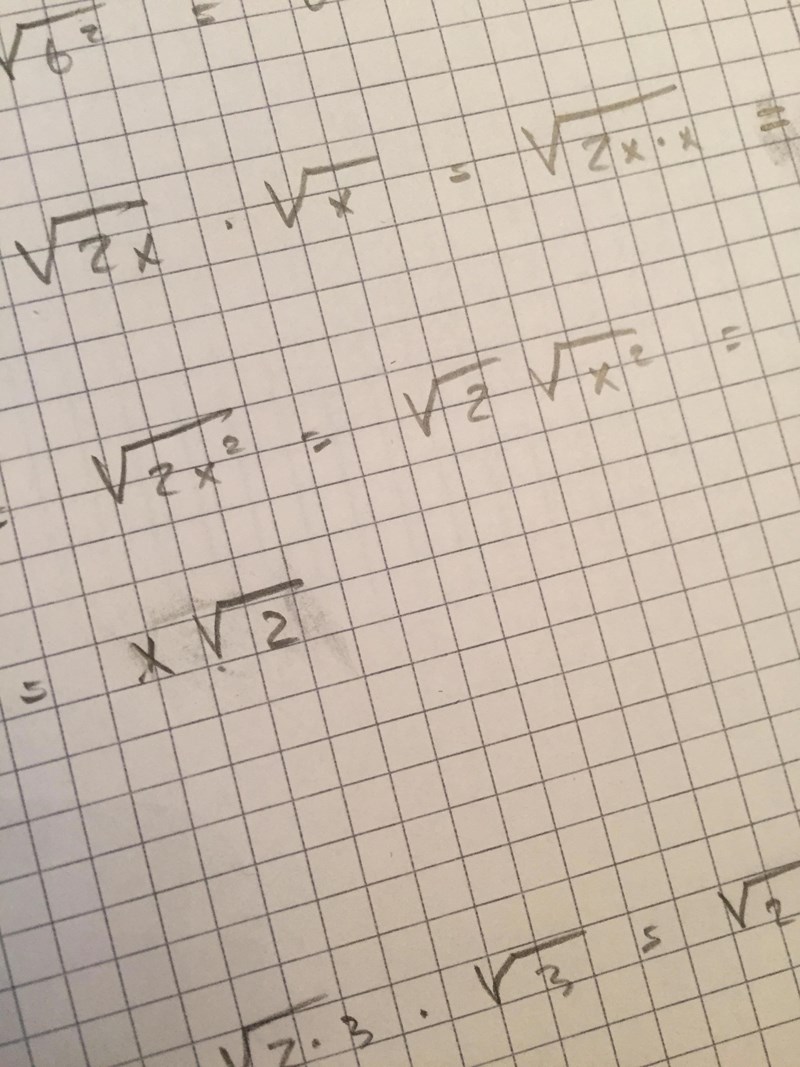 √6² =
√2x · √x = √2x·x =
= √2x² = √2 √x² =
= x √2
√2·3 · √3 = √2